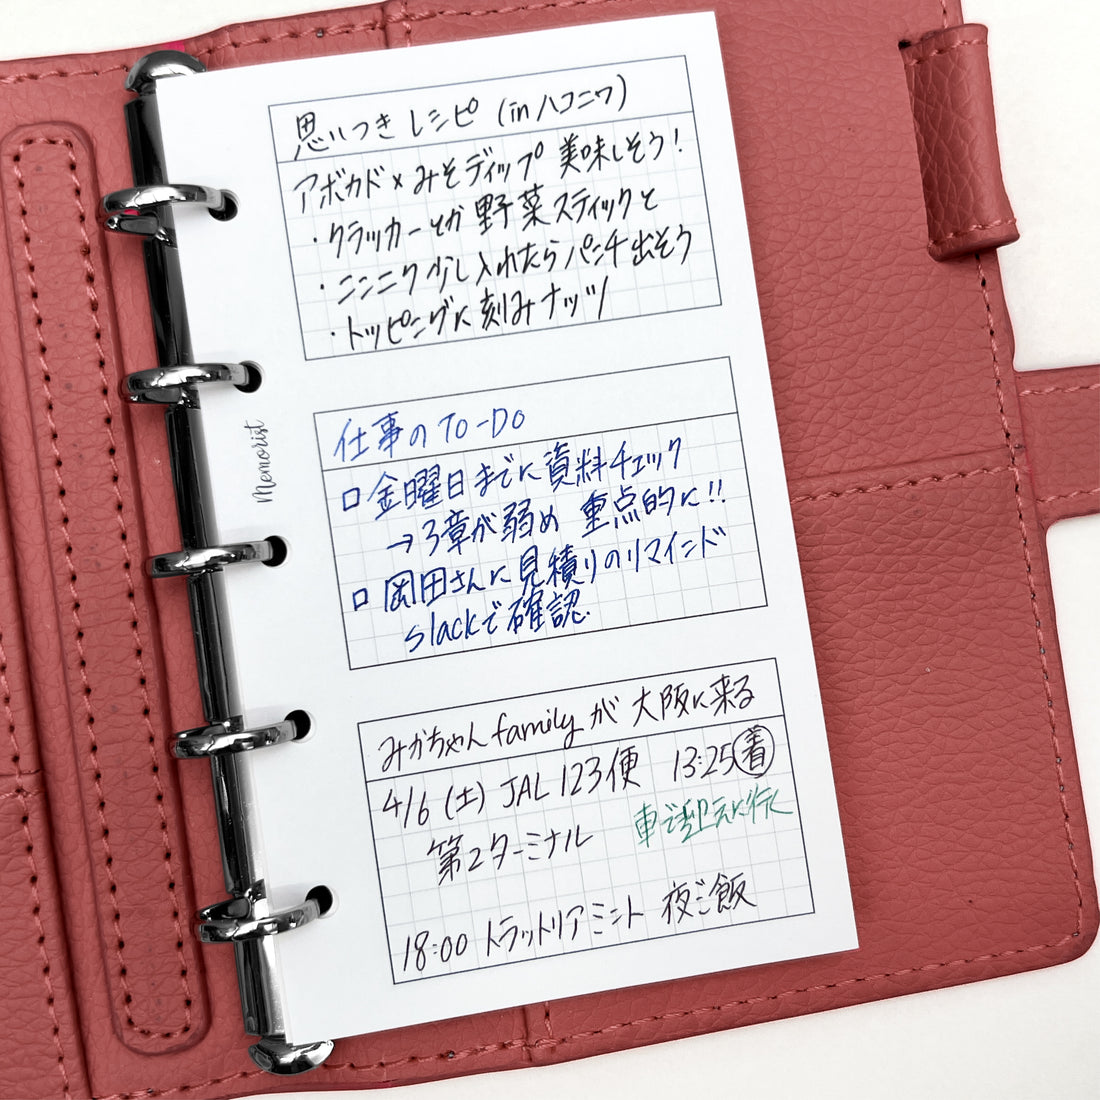 思いつきレシピ (in ハコニワ)
アボカド×みそディップ 美味しそう!
・クラッカーとか野菜スティックと
・ニンニク少し入れたらパンチ出そう
・トッピングに刻みナッツ
Memorist
仕事の TO-DO
□ 金曜日までに資料チェック
→3章が弱め 重点的に!!
□ 岡田さんに見積りのリマインド
slackで確認.
みかちゃん family が 大阪に来る
4/6 (土) JAL 123便 13:25着
第2ターミナル 車で迎えに行く
18:00 トラットリアミント 夜ご飯